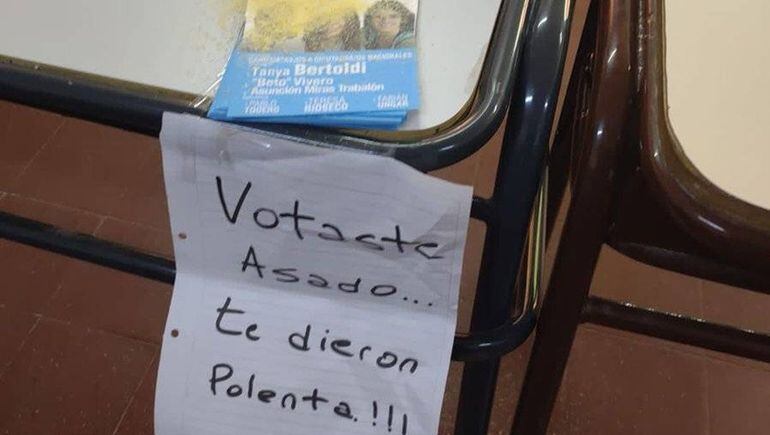 CANDIDATAS/OS A DIPUTADOS/AS NACIONALES
Tanya Bertoldi
"Beto" Vivero
Asunción Miras Trabalón
PABLO TODERO
TERESA RIOSECO
FABIÁN UNGAR
Votaste
Asado...
te dieron
Polenta.!!!